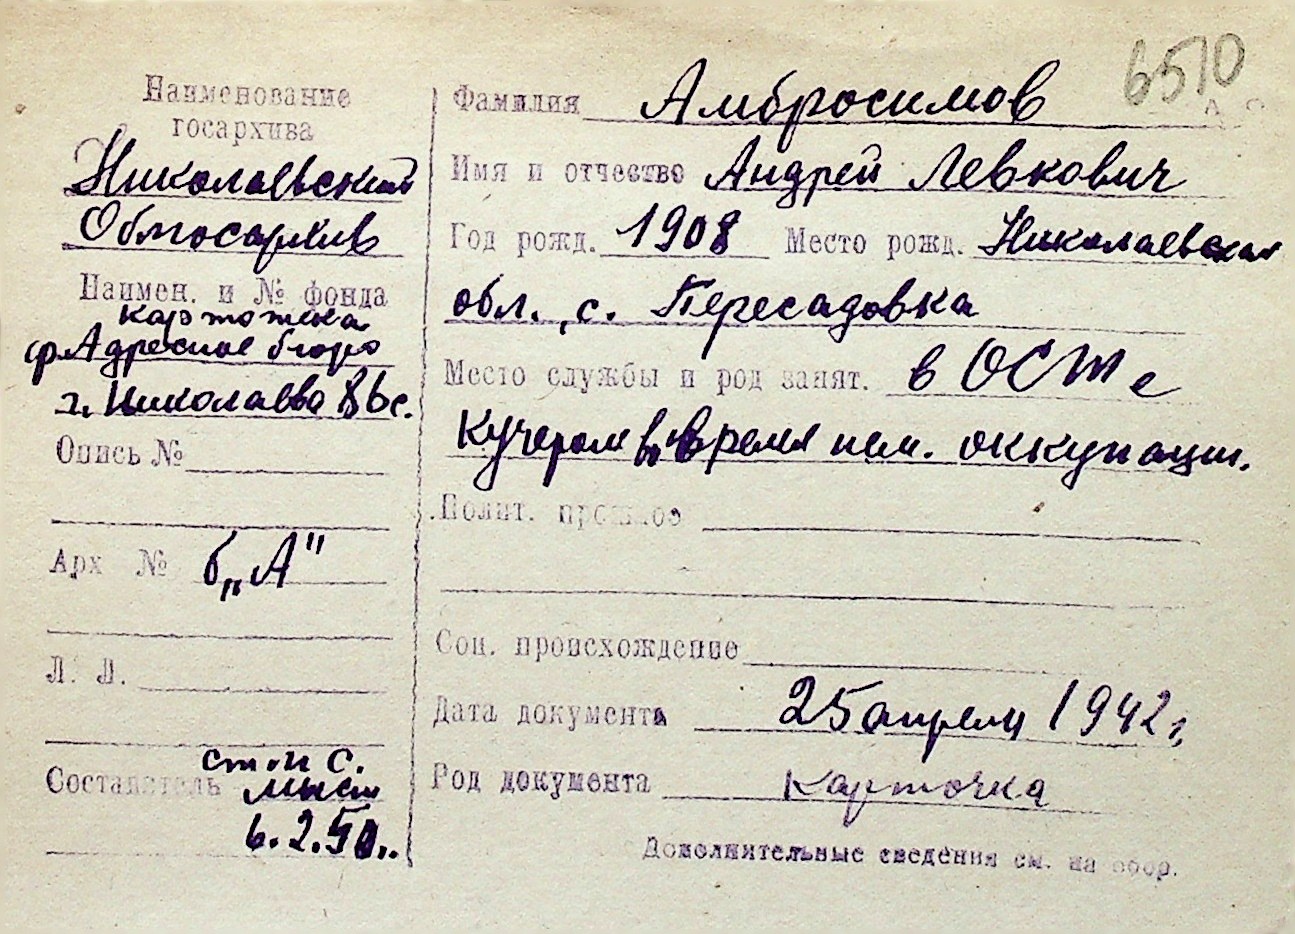 6510
Наименование
госархива
Николаевский
Облгосархив
Наимен. и № фонда
картотека
ф. Адресное бюро
г. Николаева
Опись №
Арх №
б„А"
Л. Л.
ст. н. с.
Составитель
6.2.50г.
Фамилия Амбросимов
Имя и отчество Андрей Левкович
Год рожд. 1908 Место рожд. Николаевская
обл., с. Пересадовка
Место службы и род занят. в ОСТ е
Кучером во время нем. оккупации.
Полит. прошлое
Соц. происхождение
Дата документа 25 апреля 1942 г.
Род документа карточка
Дополнительные сведения см. на обор.